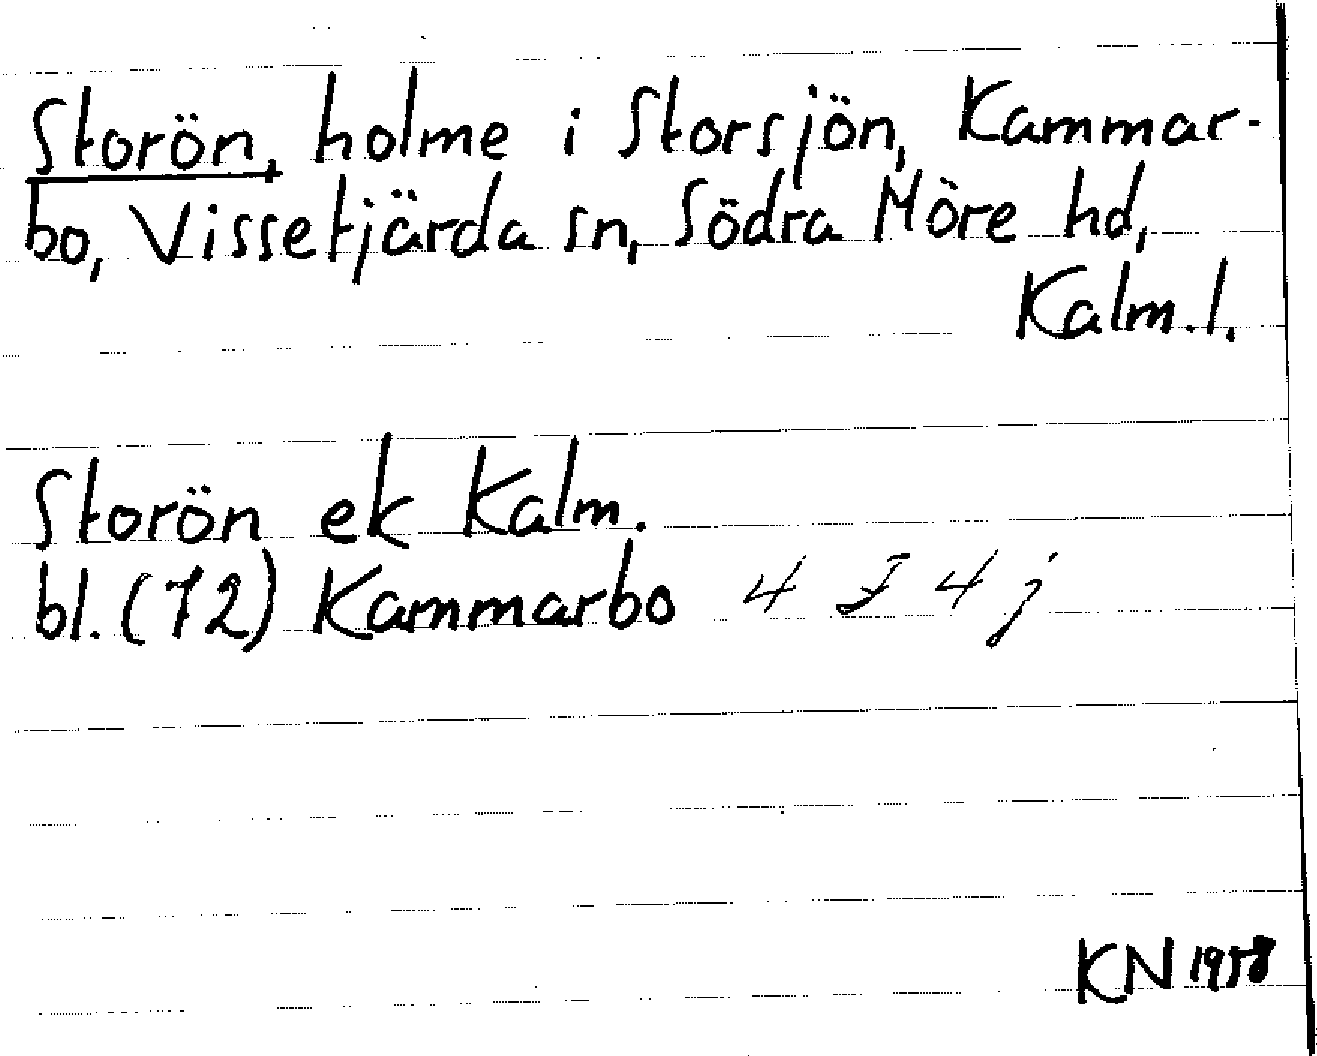 Storön, holme i Storsjön, Kammar-
bo, Vissefjärda sn, Södra Möre hd,
Kalm.l.
Storön ek Kalm.
bl. (72) Kammarbo 4 F 4 j
KN 1958